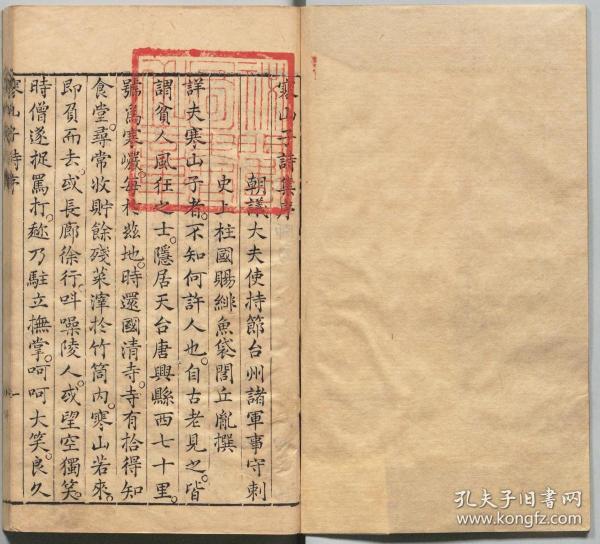 寒山子詩集序
朝議大夫使持節台州諸軍事守刺
史上柱國賜緋魚袋閭丘胤撰
詳夫寒山子者。不知何許人也。自古老見之。皆
謂貧人風狂之士。隱居天台唐興縣西七十里。
號為寒巖。每於茲地。時還國清寺。寺有拾得知
食堂。尋常收貯餘殘菜滓於竹筒內。寒山若來。
即負而去。或長廊徐行。叫噪陵人。或望空獨笑。
時僧遂捉罵打。趂乃駐立撫掌。呵呵大笑。良久
寒山子詩序
一
孔夫子旧书网
www.kongfz.com